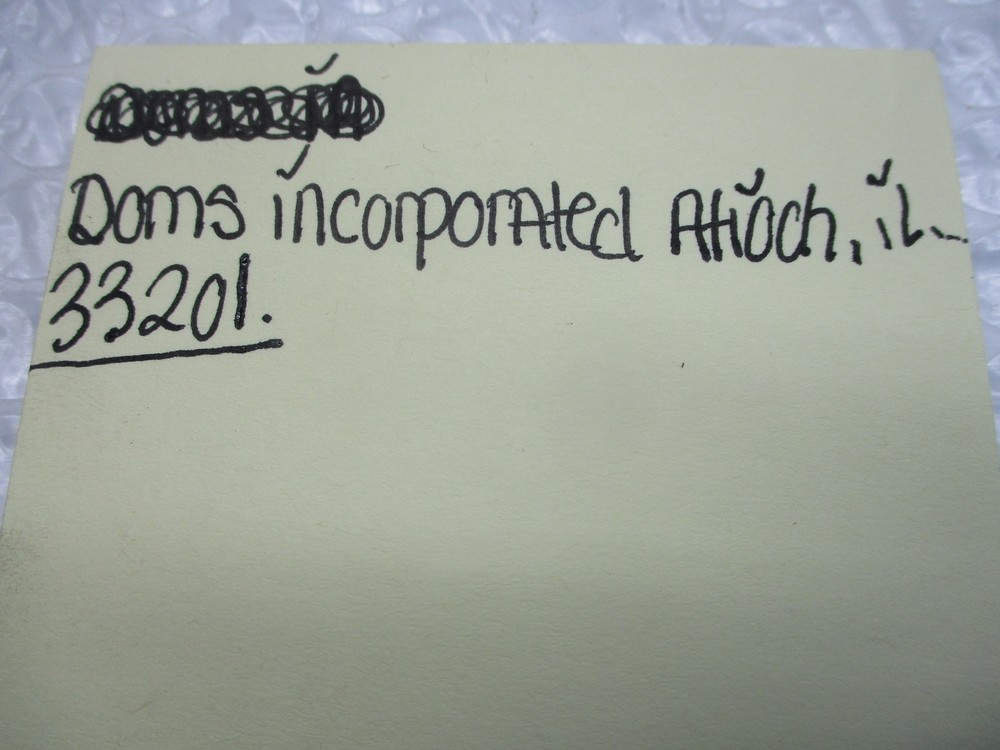 Doms incorporated Atioch, iL.
33201.